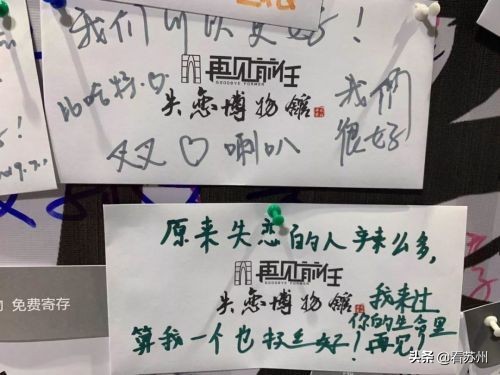 我们可以更好！
再见前任
GOODBYE FORMER
失恋博物館
我們
很好
叉叉♡喇叭
免费寄存
原来失恋的人辣么多，
再见前任
GOODBYE FORMER
失恋博物館
算我一个也挺好！
我来过
你的生命里
再见！
头条 @看苏州